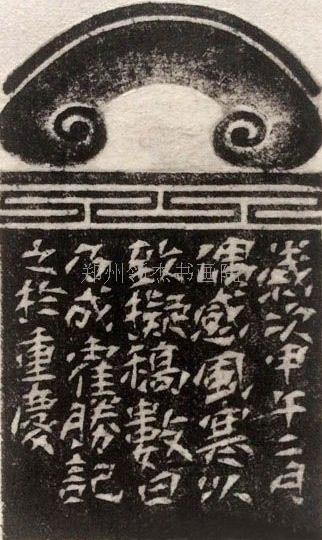 歲次甲午二月
偶感風寒以
致擬稿數日
方成霍勝記
之於重慶
郑州 杰书画院